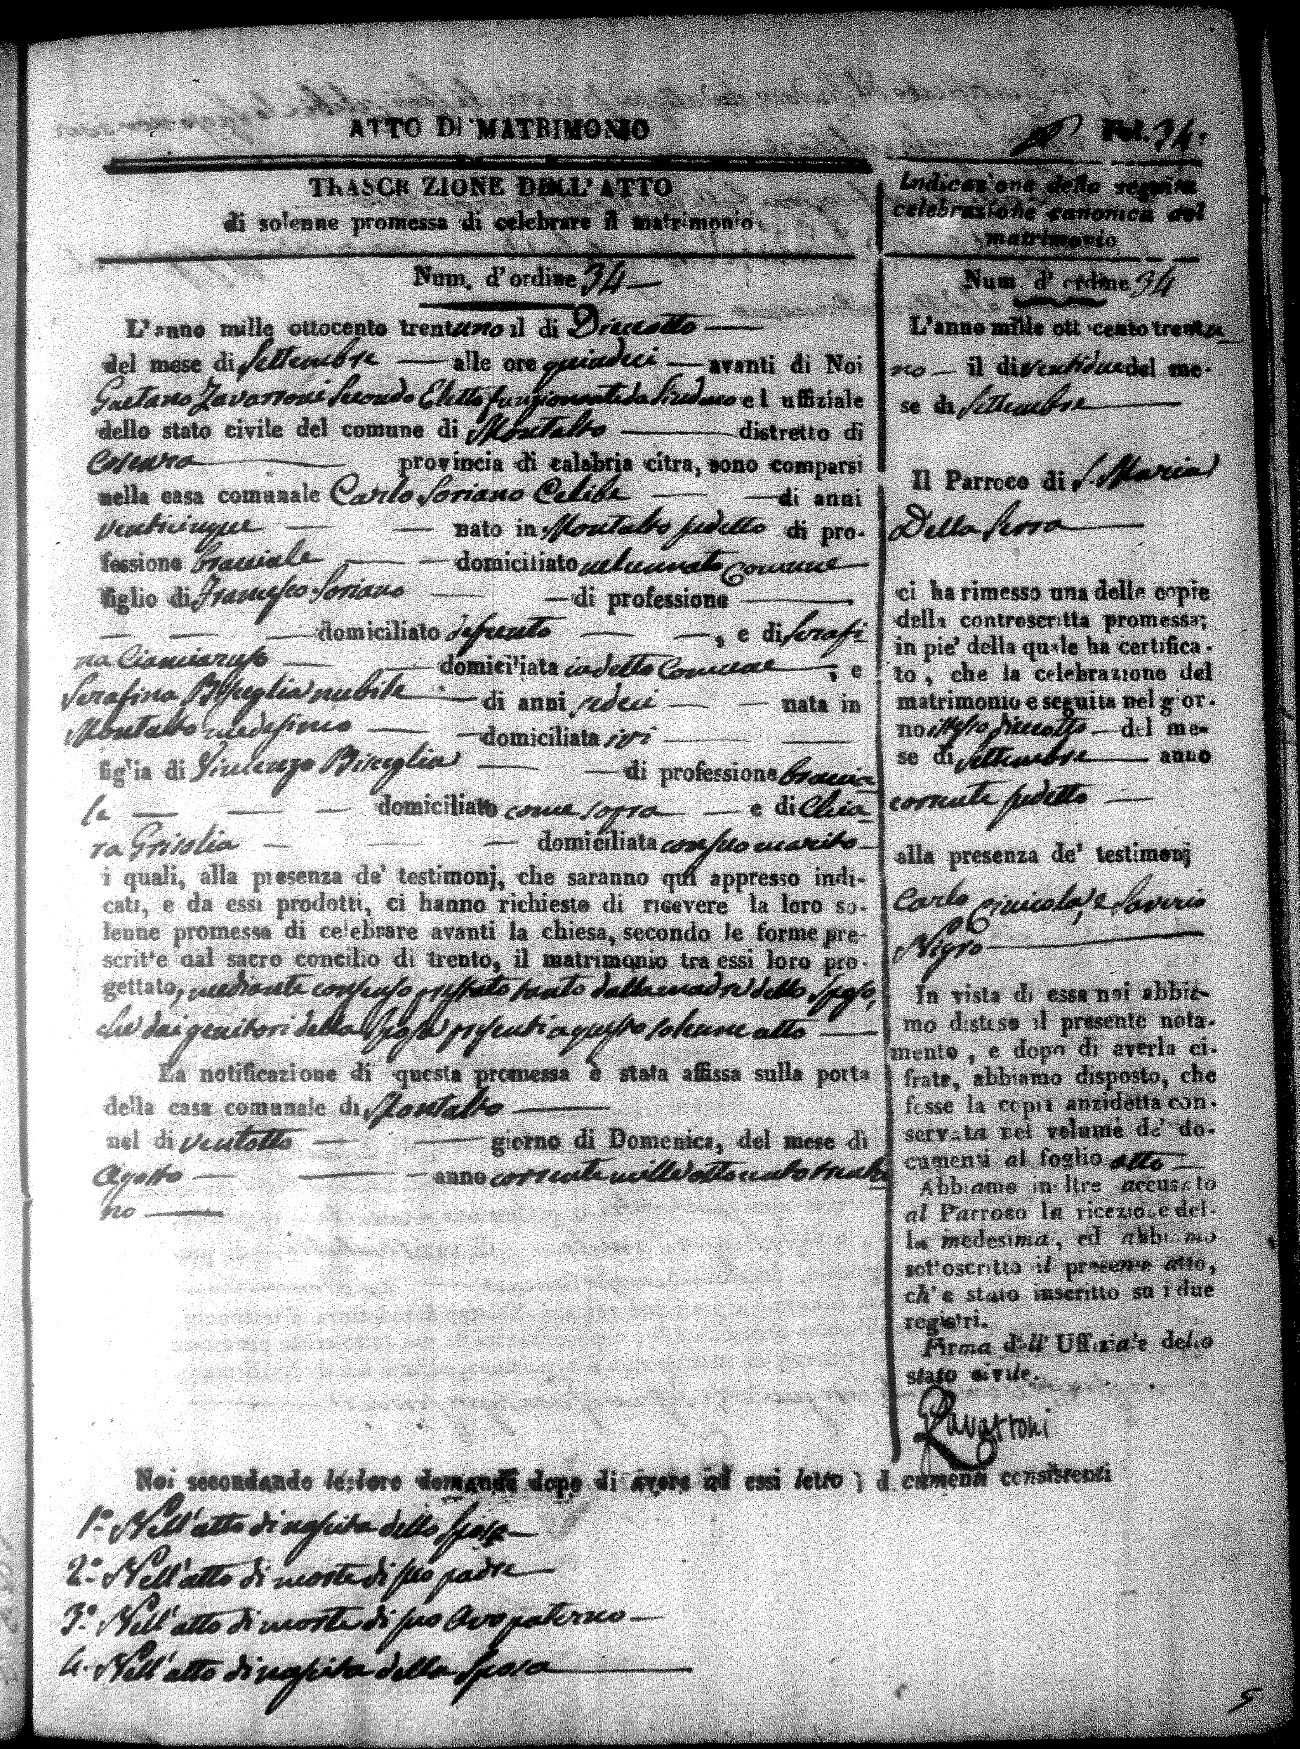 ATTO DI MATRIMONIO
Fol. 34.
TRASCRIZIONE DELL'ATTO
di solenne promessa di celebrare il matrimonio.
Num. d'ordine 34
L'anno mille ottocento trentuno il di Dieciotto
del mese di Settembre alle ore quindeci avanti di Noi
Gaetano Zavarroni Secondo Eletto funzionante da Sindaco el uffiziale
dello stato civile del comune di Montalto distretto di
Cosenza provincia di calabria citra, sono comparsi
nella casa comunale Carlo Soriano Celibe di anni
venticinque nato in Montalto sudetto di pro-
fessione bracciale domiciliato nel cennato Comune
figlio di Francesco Soriano di professione
domiciliato defunto , e di Serafi
na Cianciaruso domiciliata in detto Comune , e
Serafina Bisceglia nubile di anni sedeci nata in
Montalto medesimo domiciliata ivi
figlia di Vincenzo Bisceglia di professione braccia
le domiciliato come sopra e di Chia
ra Grisolia domiciliata con suo marito
i quali, alla presenza de' testimonj, che saranno qui appresso indi-
cati, e da essi prodotti, ci hanno richiesto di ricevere la loro so-
lenne promessa di celebrare avanti la chiesa, secondo le forme pre-
scritte dal sacro concilio di trento, il matrimonio tra essi loro pro-
gettato, mediante consenso prestato tanto dalla madre dello sposo,
che dai genitori della sposa presenti a questo solenne atto
La notificazione di questa promessa è stata affissa sulla porta
della casa comunale di Montalto
nel di ventotto giorno di Domenica, del mese di
Agosto anno corrente mille ottocento trentu
no
Indicazione della seguita
celebrazione canonica del
matrimonio
Num d'ordine 34
L'anno mille ottocento trentu
no il di ventidue del me-
se di Settembre
Il Parroco di S. Maria
Della Serra
ci ha rimesso una delle copie
della controscritta promessa;
in pie' della quale ha certifica-
to, che la celebrazione del
matrimonio e seguita nel gior-
no istesso dieciotto del me-
se di Settembre anno
corrente sudetto
alla presenza de' testimonj
Carlo e Saverio
Nigro
In vista di essa noi abbia-
mo disteso il presente nota-
mento, e dopo di averla ci-
frata, abbiamo disposto, che
fosse la copia anzidetta con-
servata nel volume de' do-
cumenti al foglio otto
Abbiamo inoltre accusato
al Parroco la ricezione del-
la medesima, ed abbiamo
sottoscritto il presente atto,
ch'e stato inscritto su i due
registri.
Firma dell' Uffiziale dello
stato civile.
Zavarroni
Noi secondando la loro domanda dopo di avere ad essi letto i documenti consistenti
1.° Nell'atto di nascita dello sposo
2.° Nell'atto di morte di suo padre
3.° Nell'atto di morte di suo Avo paterno
4. Nell'atto di nascita della sposa